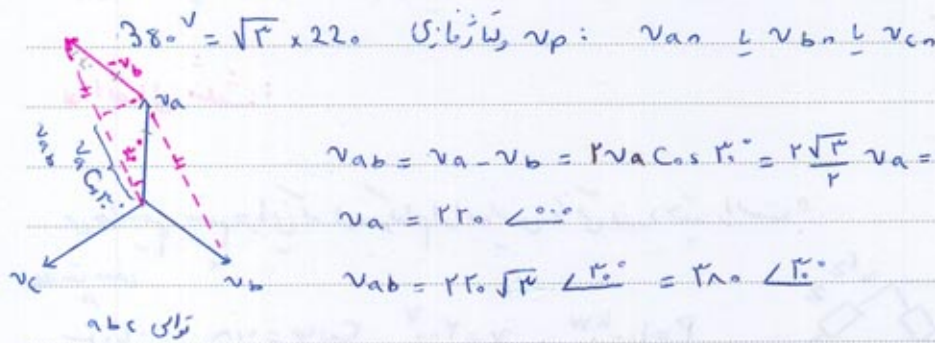 380^v = √۳ × 220 ولتاژ فازی vp : van یا vbn یا vcn
-vb
va
۳۰°
vab = va - vb = ۲va Cos ۳۰° = ۲√۳/۲ va =
va = ۲۲۰ ∠۰.۰
vc
vb
vab = ۲۲۰√۳ ∠۳۰° = ۳۸۰ ∠۳۰°
توالی abc